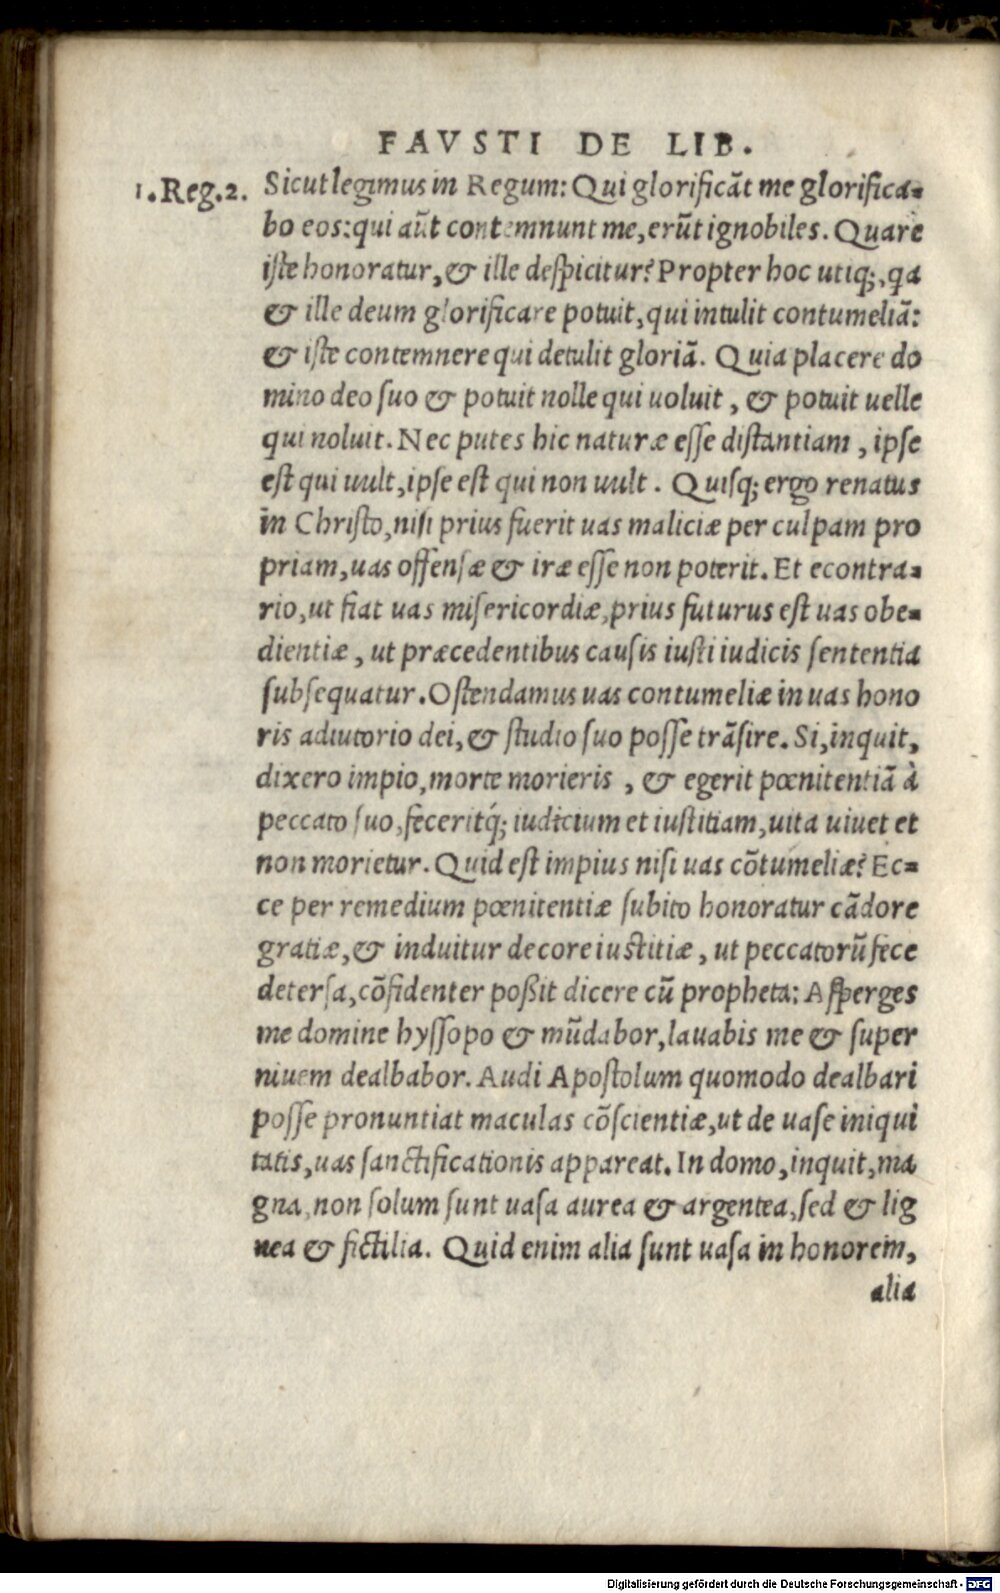 FAVSTI DE LIB.
1.Reg.2. Sicut legimus in Regum: Qui glorificãt me glorifica-
bo eos: qui aũt contemnunt me, erũt ignobiles. Quare
iste honoratur, & ille despicitur? Propter hoc utiq;, qa
& ille deum glorificare potuit, qui intulit contumeliã:
& iste contemnere qui detulit gloriã. Quia placere do
mino deo suo & potuit nolle qui uoluit, & potuit uelle
qui noluit. Nec putes hic naturæ esse distantiam, ipse
est qui uult, ipse est qui non uult. Quisq; ergo renatus
in Christo, nisi prius fuerit uas maliciæ per culpam pro
priam, uas offensæ & iræ esse non poterit. Et econtra-
rio, ut fiat uas misericordiæ, prius futurus est uas obe-
dientiæ, ut præcedentibus causis iusti iudicis sententia
subsequatur. Ostendamus uas contumeliæ in uas hono
ris adiutorio dei, & studio suo posse trãsire. Si, inquit,
dixero impio, morte morieris, & egerit pœnitentiã à
peccato suo, feceritq́; iudicium et iustitiam, uita uiuet et
non morietur. Quid est impius nisi uas cõtumeliæ? Ec-
ce per remedium pœnitentiæ subito honoratur cãdore
gratiæ, & induitur decore iustitiæ, ut peccatorũ fece
detersa, cõfidenter poßit dicere cũ propheta: Asperges
me domine hyssopo & mũdabor, lauabis me & super
niuem dealbabor. Audi Apostolum quomodo dealbari
posse pronuntiat maculas cõscientiæ, ut de uase iniqui
tatis, uas sanctificationis appareat. In domo, inquit, ma
gna, non solum sunt uasa aurea & argentea, sed & lig
nea & fictilia. Quid enim alia sunt uasa in honorem,
alia
Digitalisierung gefördert durch die Deutsche Forschungsgemeinschaft - DFG